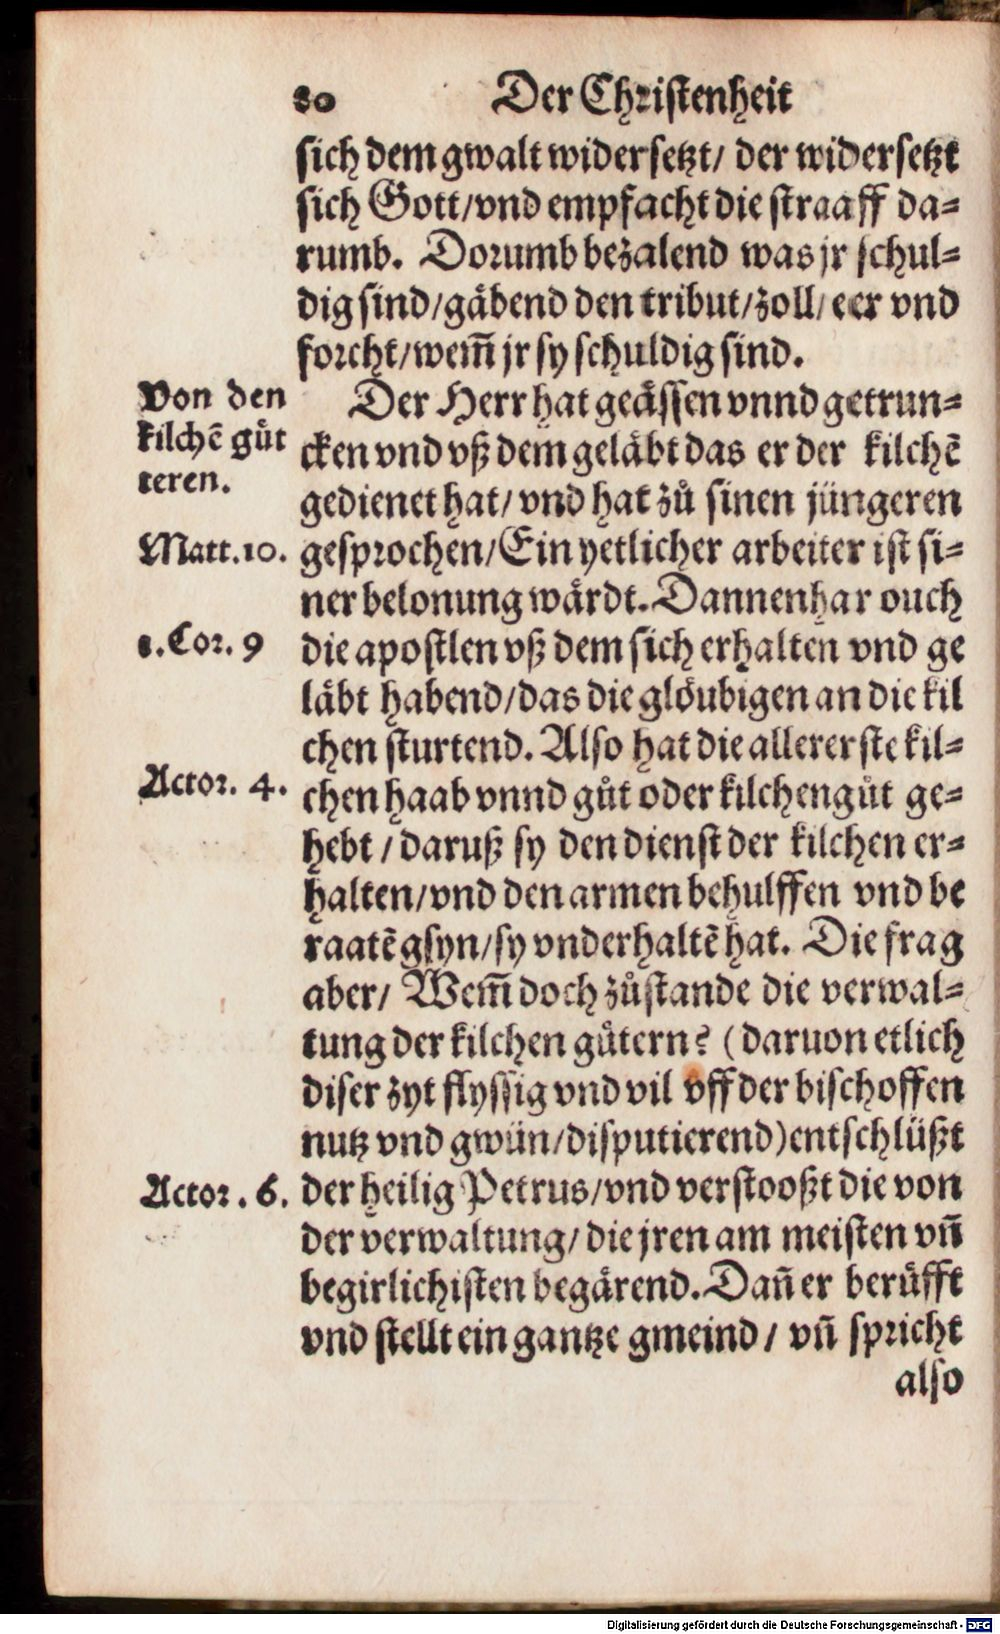 80 Der Christenheit
sich dem gwalt widersetzt/ der widersetzt
sich Gott/vnd empfacht die straaff da-
rumb. Dorumb bezalend was jr schul-
dig sind/gåbend den tribut/zoll/eer vnd
forcht/wem̃ jr sy schuldig sind.
Von den
kilchẽ güt
teren.
Der Herr hat geåssen vnnd getrun-
cken vnd vß dem gelåbt das er der kilchẽ
gedienet hat/ vnd hat zů sinen jüngeren
Matt.10.
gesprochen/Ein yetlicher arbeiter ist si-
ner belonung wårdt. Dannenhar ouch
1.Cor. 9
die apostlen vß dem sich erhalten vnd ge
låbt habend/das die glöubigen an die kil
chen sturtend. Also hat die allererste kil-
Actor. 4.
chen haab vnnd gůt oder kilchengůt ge-
hebt / daruß sy den dienst der kilchen er-
halten/vnd den armen behulffen vnd be
raatẽ gsyn/sy vnderhaltẽ hat. Die frag
aber/ Wem̃ doch zůstande die verwal-
tung der kilchen gütern? (daruon etlich
diser zyt flyssig vnd vil vff der bischoffen
nutz vnd gwün/disputierend) entschlüßt
Actor. 6.
der heilig Petrus/vnd verstooßt die von
der verwaltung/ die jren am meisten vñ
begirlichisten begårend. Dañ er berüfft
vnd stellt ein gantze gmeind / vñ spricht
also
Digitalisierung gefördert durch die Deutsche Forschungsgemeinschaft - DFG